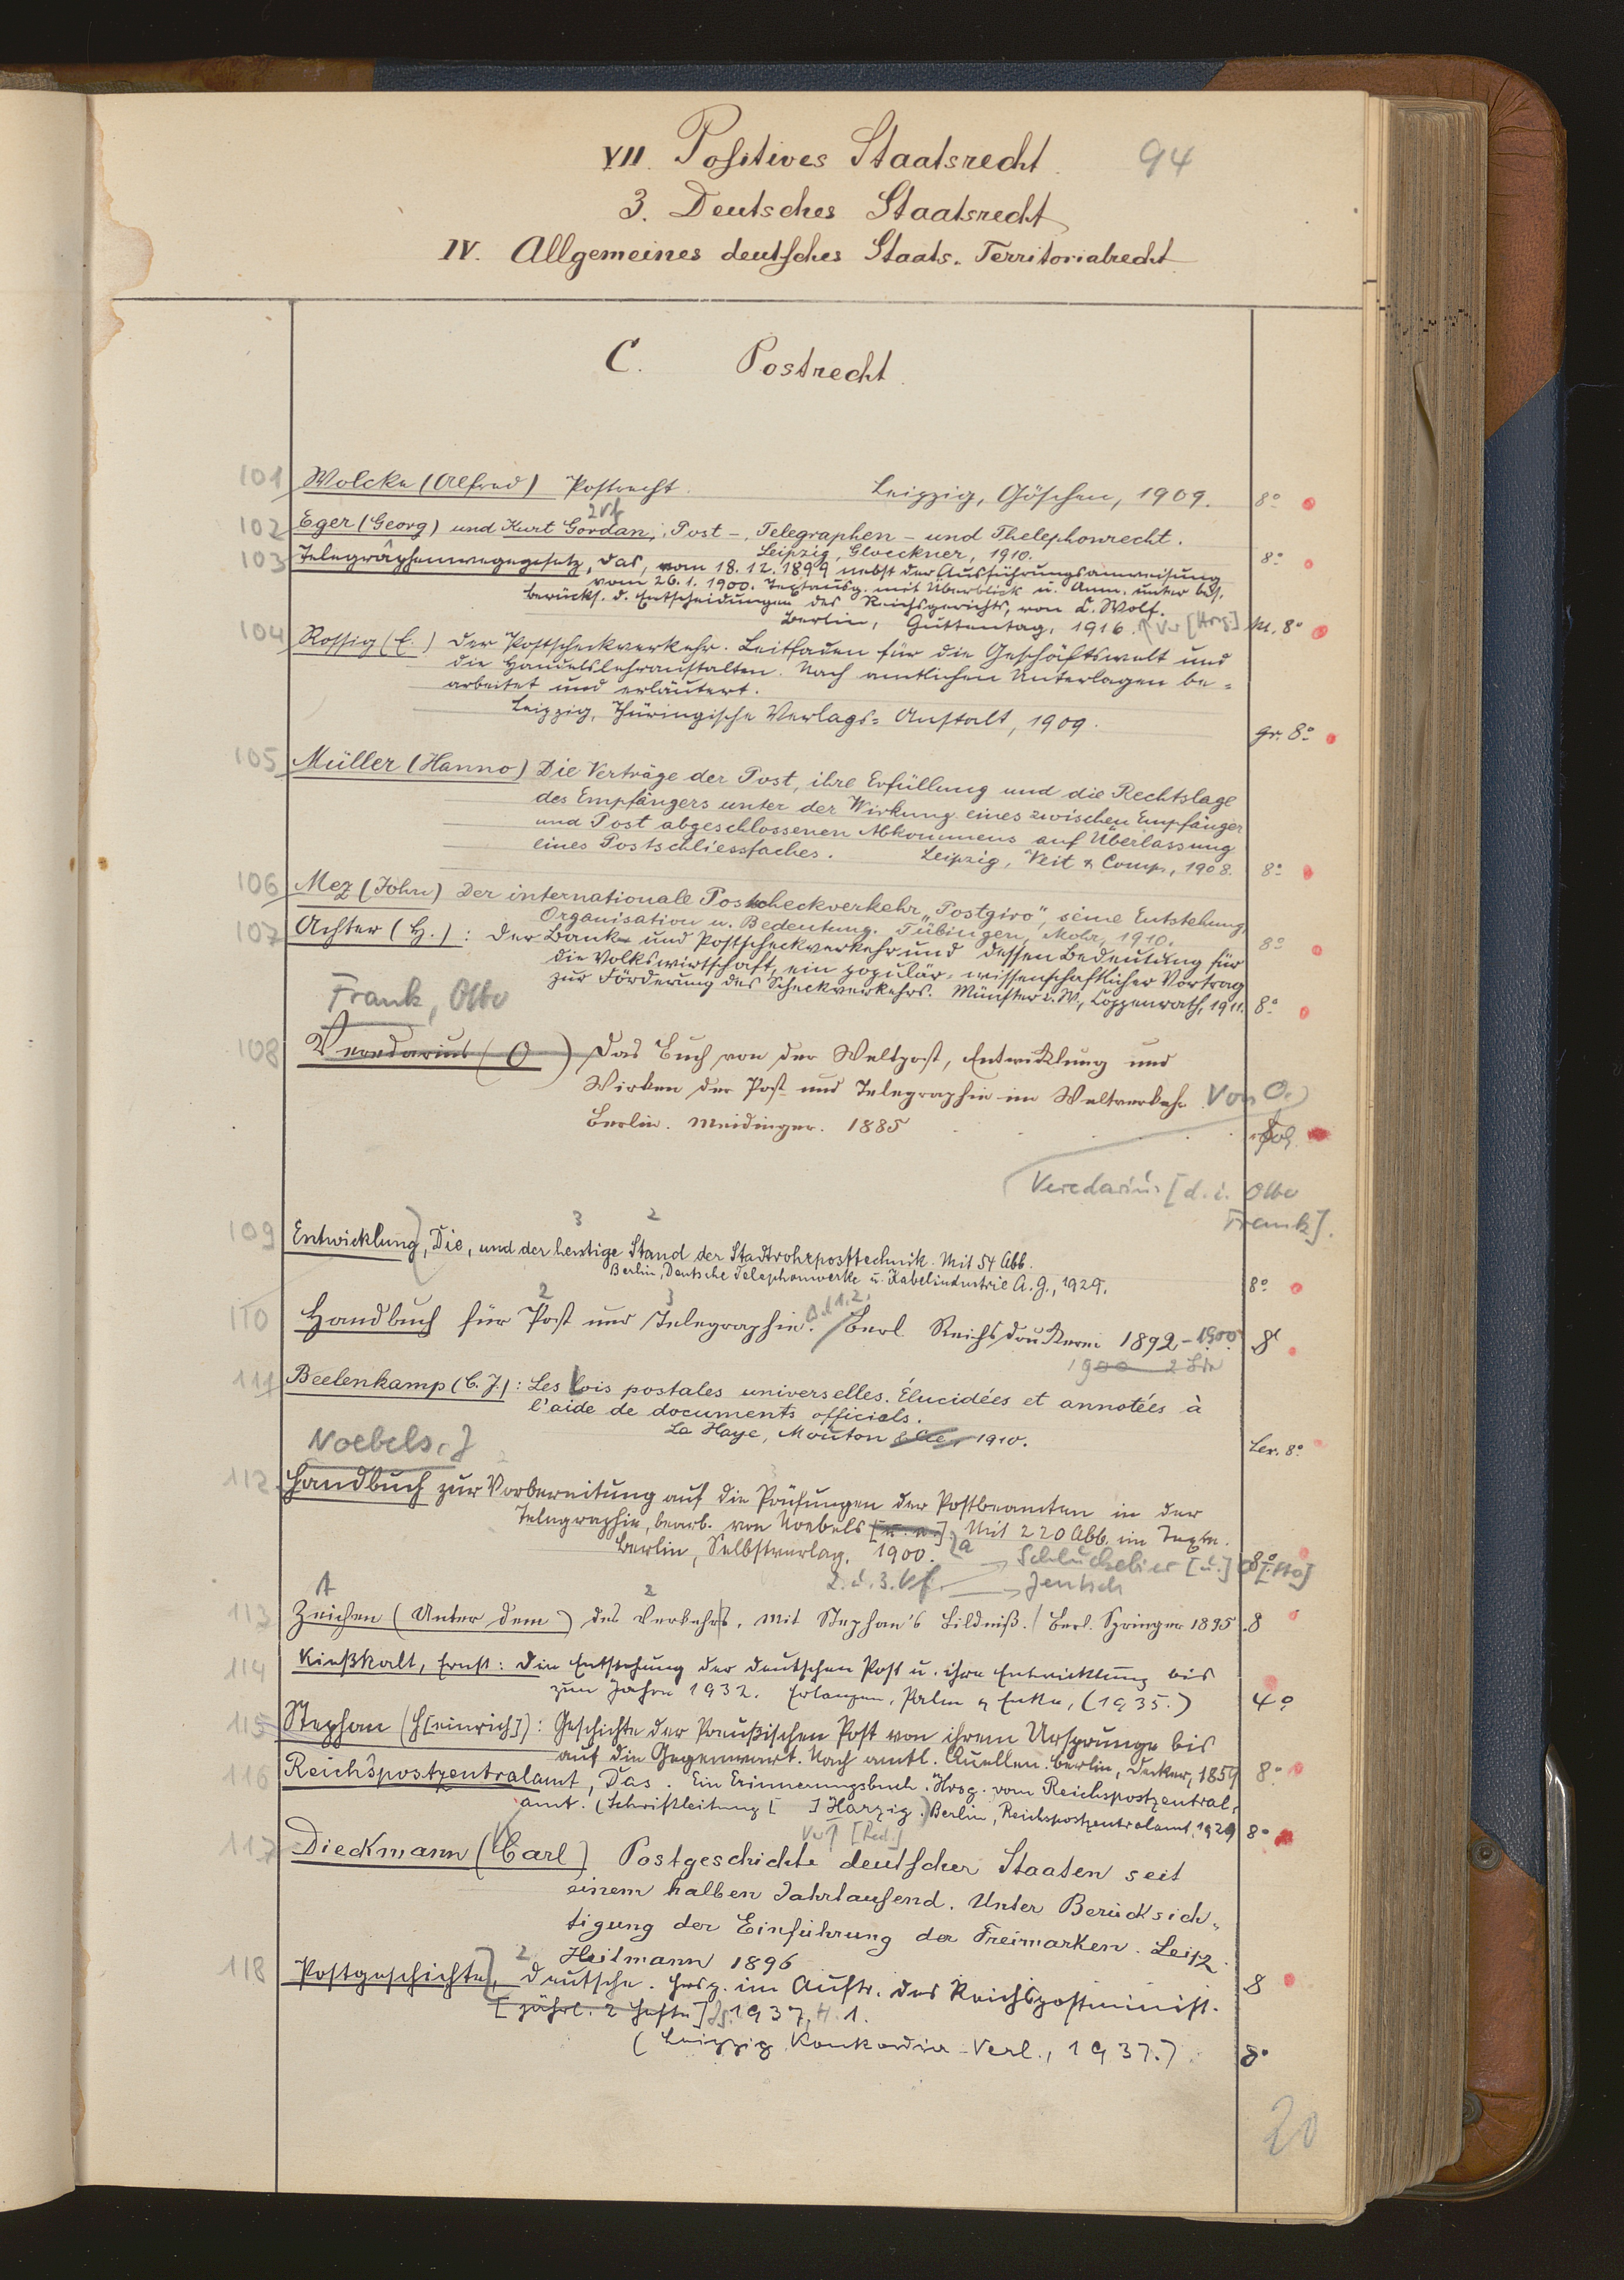 VII. Positives Staatsrecht. 94
3. Deutsches Staatsrecht
IV. Allgemeines deutsches Staats-Territorialrecht
C. Postrecht.
101 Wolcke (Alfred) Postrecht. Leipzig, Göschen, 1909. 8°
2 Vf
102 Eger (Georg) und Kurt Gordan, Post-, Telegraphen- und Thelephonrecht.
Leipzig, Gloeckner, 1910. 8°
103 Telegraphenwegegesetz, das, vom 18.12.1899 nebst der Ausführungsanweisung
vom 26.1.1900. Textausg. mit Überblick u. Anm. unter bes.
Berücks. d. Entscheidungen des Reichsgerichts, von L. Wolf.
Berlin, Guttentag, 1916. Vw [Hrsg.] kl. 8°
104 Rossig (E.) Der Postscheckverkehr. Leitfaden für die Geschäftswelt und
die Handelslehranstalten. Nach amtlichen Unterlagen be-
arbeitet und erläutert.
Leipzig, Thüringische Verlags-Anstalt, 1909. gr. 8°
105 Müller (Hanno) Die Verträge der Post, ihre Erfüllung und die Rechtslage
des Empfängers unter der Wirkung eines zwischen Empfänger
und Post abgeschlossenen Abkommens auf Überlassung
eines Postschliessfaches. Leipzig, Veit & Comp., 1908. 8°
106 Mez (John) Der internationale Postscheckverkehr „Postgiro", seine Entstehung,
Organisation u. Bedeutung. Tübingen, Mohr, 1910. 8°
107 Achter (H.): Der Bank- und Postscheckverkehr und dessen Bedeutung für
die Volkswirtschaft, ein populär-wissenschaftlicher Vortrag
zur Förderung des Scheckverkehrs. Münster i. W., Coppenrath, 1911. 8°
Frank, Otto
108 Veredarius (O) Das Buch von der Weltpost, Entwicklung und
Wirken der Post und Telegraphie im Weltverkehr. Von O.
Berlin. Meidinger. 1885 Fol.
Veredarius [d. i. Otto
Frank].
3 2
109 Entwicklung, Die, und der heutige Stand der Stadtrohrposttechnik. Mit 54 Abb.
Berlin, Deutsche Telephonwerke u. Kabelindustrie A.G., 1929. 8°
2 3 Bd 1.2.
110 Handbuch für Post und Telegraphie. Berl. Reichsdruckerei 1892-1900. 8°
1900 2 Bde
111 Beelenkamp (C. J.): Les lois postales universelles. Élucidées et annotées à
l'aide de documents officiels.
La Haye, Mouton & Cie, 1910. Lex. 8°
Noebels, J
112 Handbuch zur Vorbereitung auf die Prüfungen der Postbeamten in der
Telegraphie, bearb. von Noebels [u. a.]. Mit 220 Abb. im Texte.
Berlin, Selbstverlag, 1900. 8°
Schluckebier [u.] O[tto]
2. u. 3. Vf. Jentsch
A 2
113 Zeichen (Unter dem) des Verkehrs. Mit Stephan's Bildniß. Berl. Springer 1895. 8
114 Kießkalt, Ernst: Die Entstehung der deutschen Post u. ihre Entwicklung bis
zum Jahre 1932. Erlangen, Palm & Enke, (1935.) 4°
115 Stephan (H[einrich]): Geschichte der Preußischen Post von ihrem Ursprunge bis
auf die Gegenwart. Nach amtl. Quellen. Berlin, Decker, 1859 8°
116 Reichspostzentralamt, Das. Ein Erinnerungsbuch. Hrsg. vom Reichspostzentral-
amt. (Schriftleitung [ ] Harzig.) Berlin, Reichspostzentralamt, 1929 8°
Vw [Red.]
117 Dieckmann (Carl) Postgeschichte deutscher Staaten seit
einem halben Jahrtausend. Unter Berücksich-
tigung der Einführung der Freimarken. Leipz.
Heitmann 1896 8
2
118 Postgeschichte, deutsche. Hrsg. im Auftr. des Reichspostminist.
[Jährl. 2 Hefte] Jg. 1937, H. 1.
(Leipzig Konkordia-Verl., 1937.) 8°
20